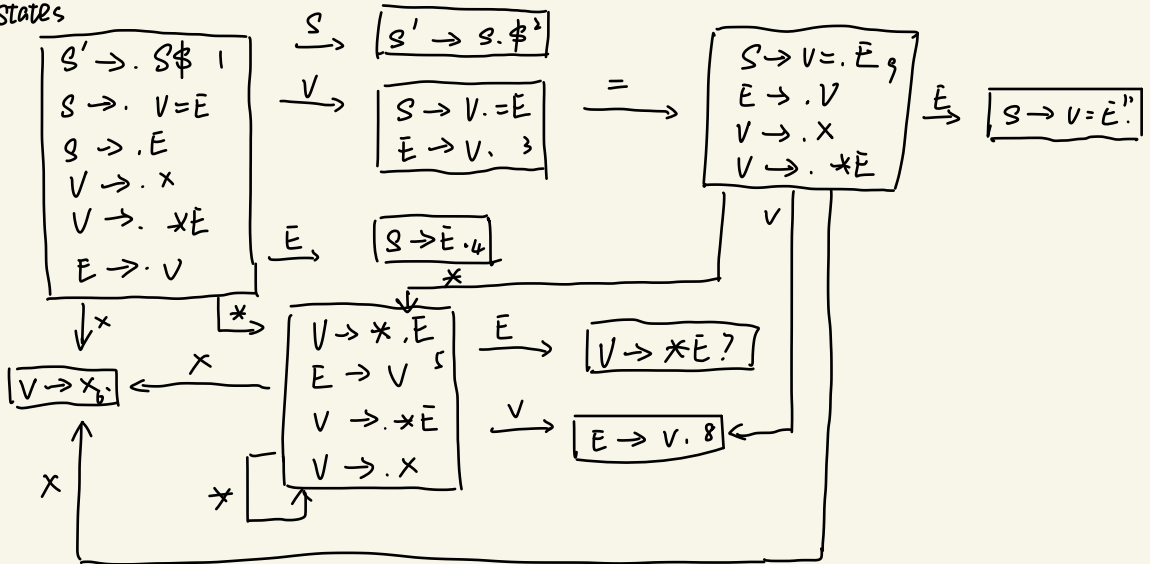 states
S' → . S$ 1
S → . V=E
S → .E
V → . x
V → . *E
E → . V
S
S' → S.$ 2
V
S → V.=E
E → V. 3
=
S → V=.E 9
E → .V
V → .X
V → . *E
E
S → V=E.
E
S → E.4
*
V
x
*
V → *.E
E → V 5
V → .*E
V → .X
E
V → *E
V
E → V. 8
X
V → X6.
*
X